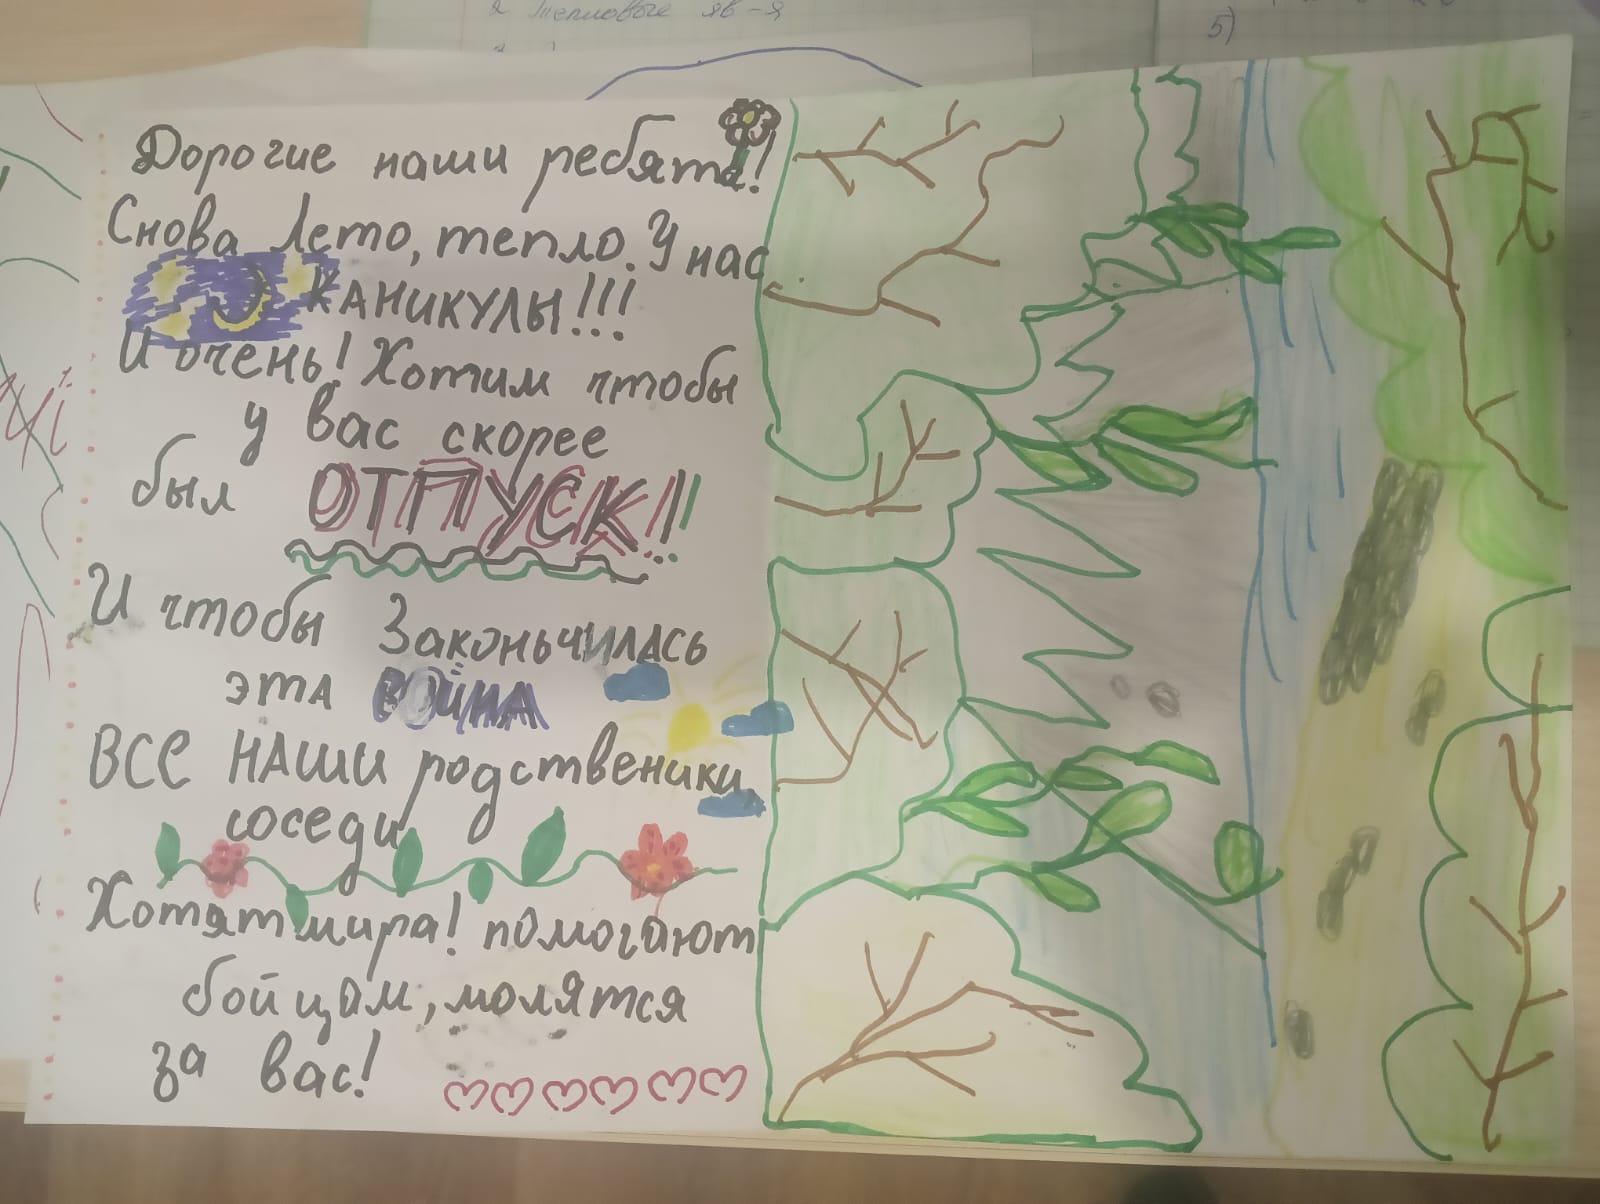 2 Тепловые яв-я
5)
Дорогие наши ребята!
Снова Лето, тепло. У нас
КАНИКУЛЫ!!!
И очень! Хотим чтобы
у вас скорее
был ОТПУСК!!
И чтобы Законьчилась
эта ВОЙНА
ВСЕ НАШИ родственики
соседи
Хотят мира! помогают
бойцам, молятся
за вас!